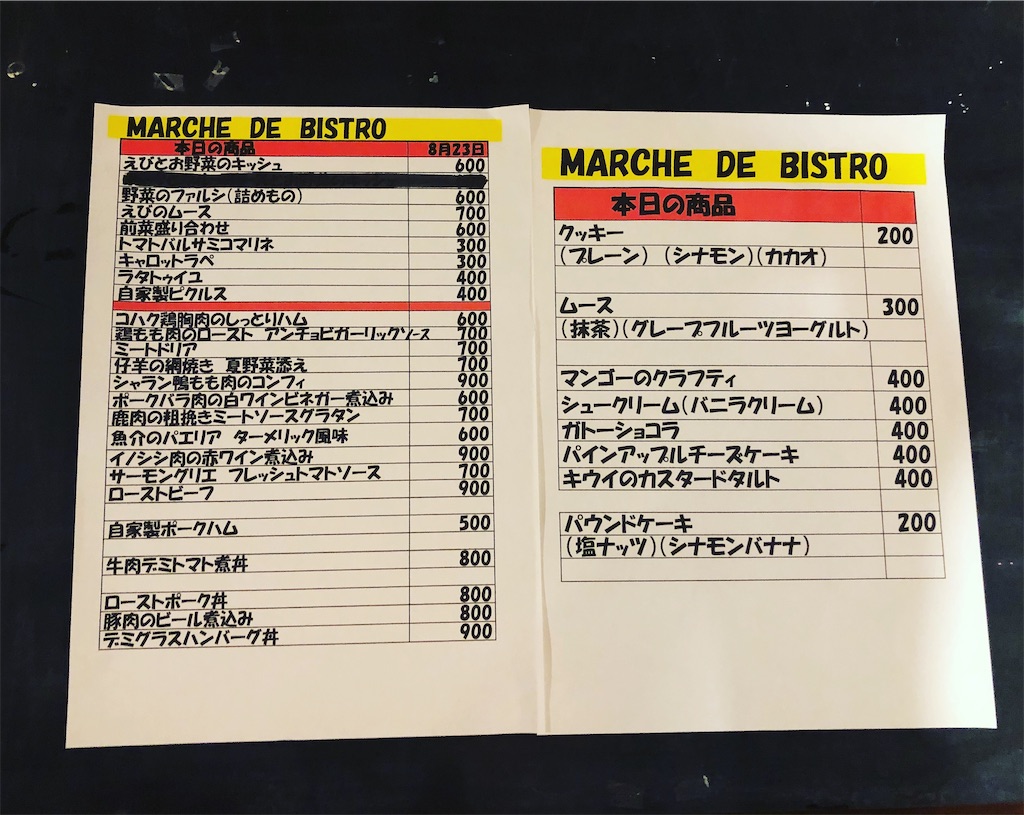 MARCHE DE BISTRO
本日の商品 8月23日
えびとお野菜のキッシュ 600
野菜のファルシ(詰めもの) 600
えびのムース 700
前菜盛り合わせ 600
トマトバルサミコマリネ 300
キャロットラペ 300
ラタトゥイユ 400
自家製ピクルス 400
コハク鶏胸肉のしっとりハム 600
鶏もも肉のロースト アンチョビガーリックソース 700
ミートドリア 700
仔羊の網焼き 夏野菜添え 700
シャラン鴨もも肉のコンフィ 900
ポークバラ肉の白ワインビネガー煮込み 600
鹿肉の粗挽きミートソースグラタン 700
魚介のパエリア ターメリック風味 600
イノシシ肉の赤ワイン煮込み 900
サーモングリエ フレッシュトマトソース 700
ローストビーフ 900
自家製ポークハム 500
牛肉デミトマト煮丼 800
ローストポーク丼 800
豚肉のビール煮込み 800
デミグラスハンバーグ丼 900
MARCHE DE BISTRO
本日の商品
クッキー 200
(プレーン) (シナモン)(カカオ)
ムース 300
(抹茶)(グレープフルーツヨーグルト)
マンゴーのクラフティ 400
シュークリーム(バニラクリーム) 400
ガトーショコラ 400
パインアップルチーズケーキ 400
キウイのカスタードタルト 400
パウンドケーキ 200
(塩ナッツ)(シナモンバナナ)